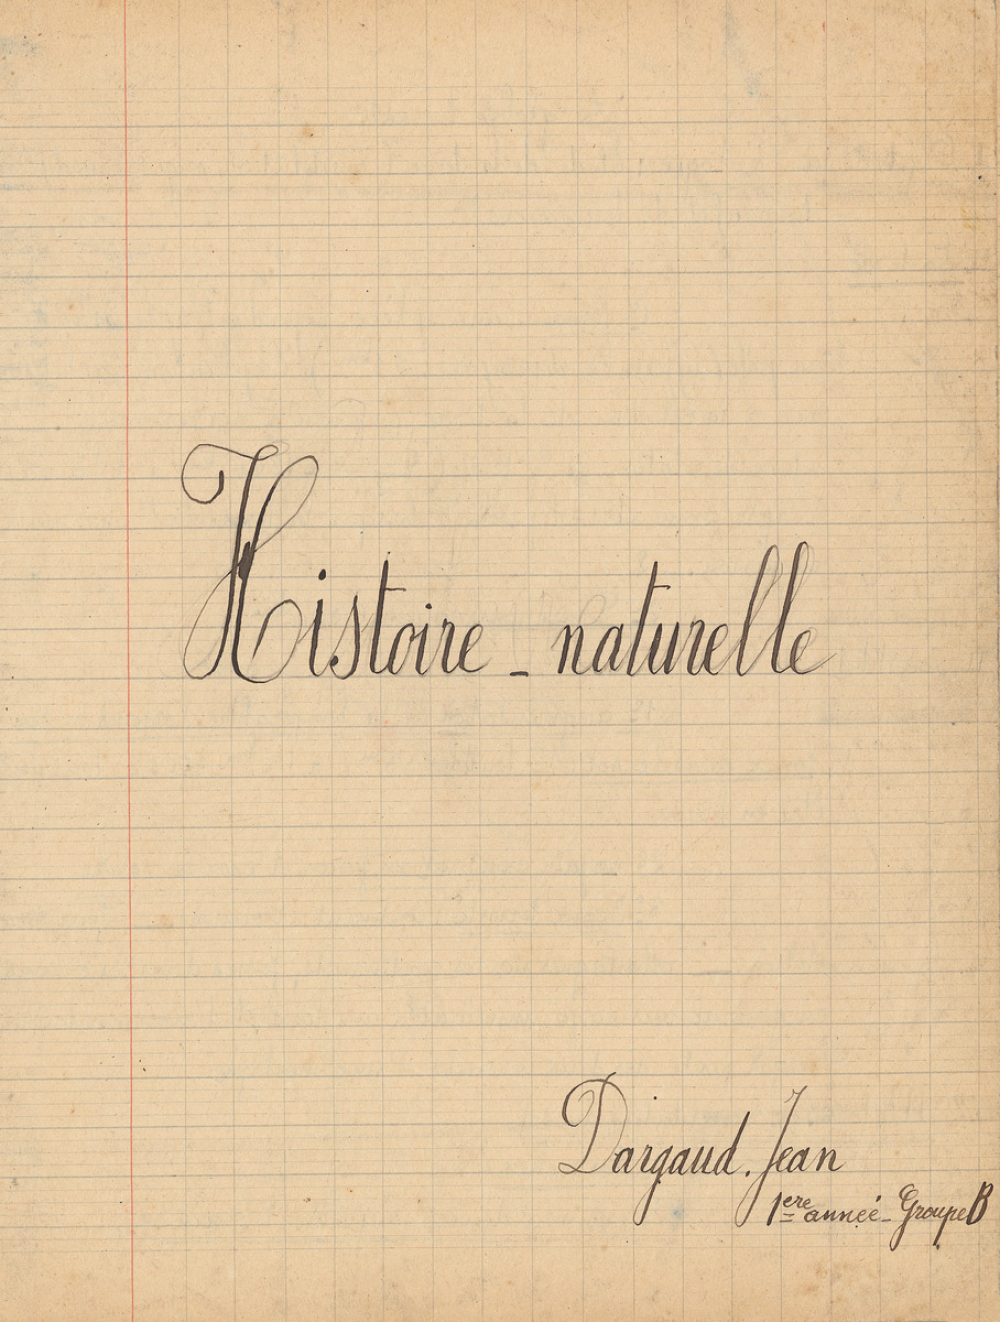 Histoire - naturelle
Dargaud. Jean
1ere année - Groupe B